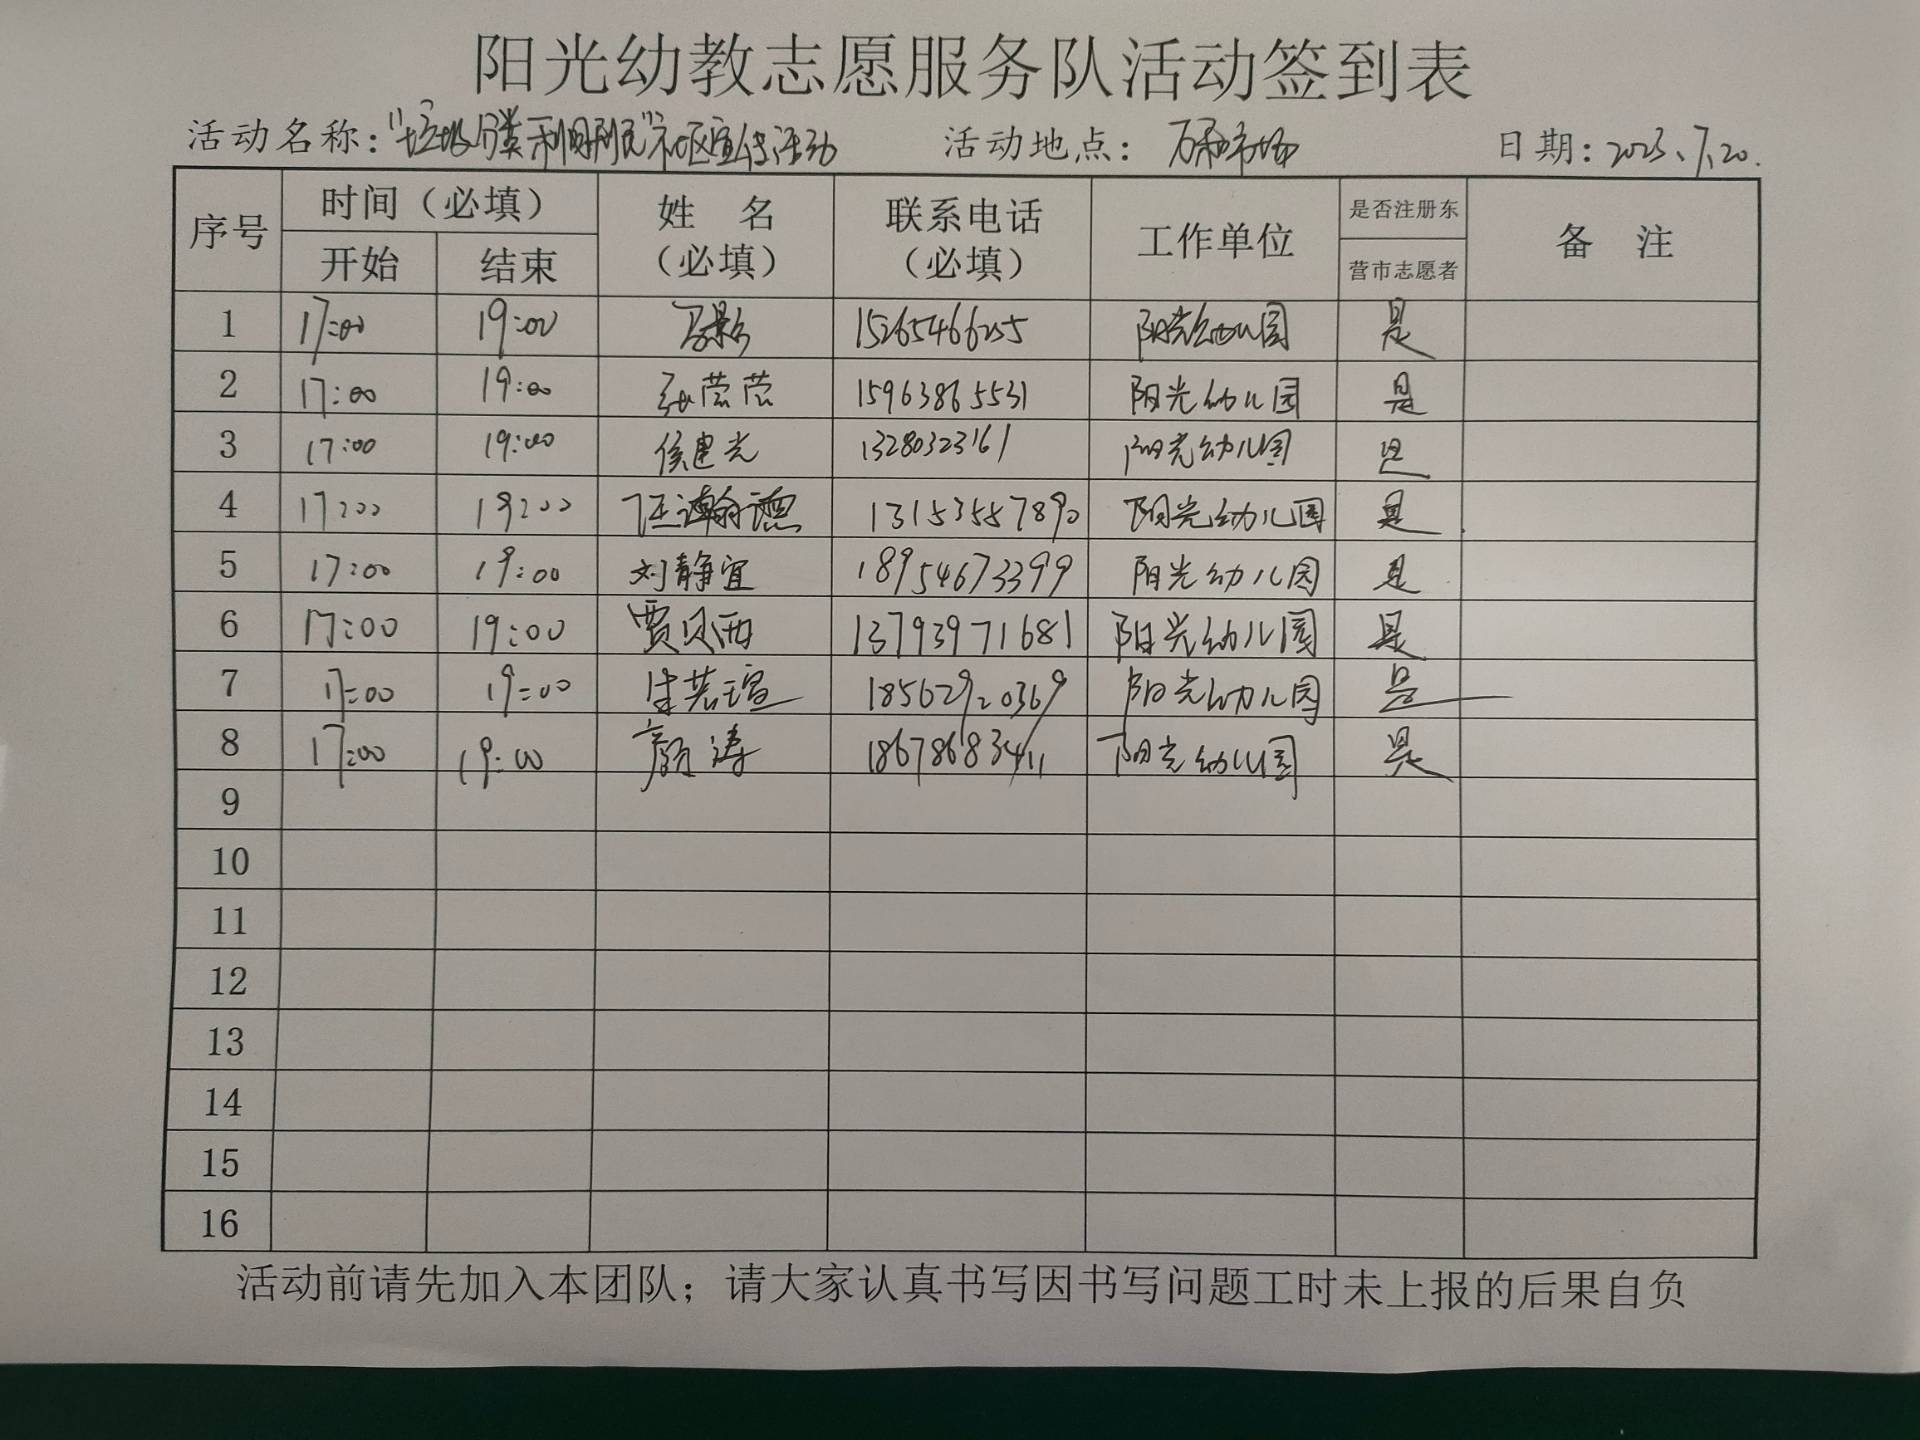 阳光幼教志愿服务队活动签到表
活动名称：“垃圾分类 利国利民”社区宣传活动 活动地点： 万和市场 日期：2023.7.20.
序号 时间（必填） 姓 名 （必填） 联系电话 （必填） 工作单位 是否注册东 营市志愿者 备 注
开始 结束
1 17:00 19:00 15265466255 阳光幼儿园 是
2 17:00 19:00 张莹莹 15963865531 阳光幼儿园 是
3 17:00 19:00 侯建光 13280323161 阳光幼儿园 是
4 17:00 19:00 13153557890 阳光幼儿园 是
5 17:00 19:00 刘静宜 18954673399 阳光幼儿园 是
6 17:00 19:00 贾贝西 13793971681 阳光幼儿园 是
7 17:00 19:00 18562920369 阳光幼儿园 是
8 17:00 19:00 颜涛 18678683411 阳光幼儿园 是
9
10
11
12
13
14
15
16
活动前请先加入本团队；请大家认真书写因书写问题工时未上报的后果自负